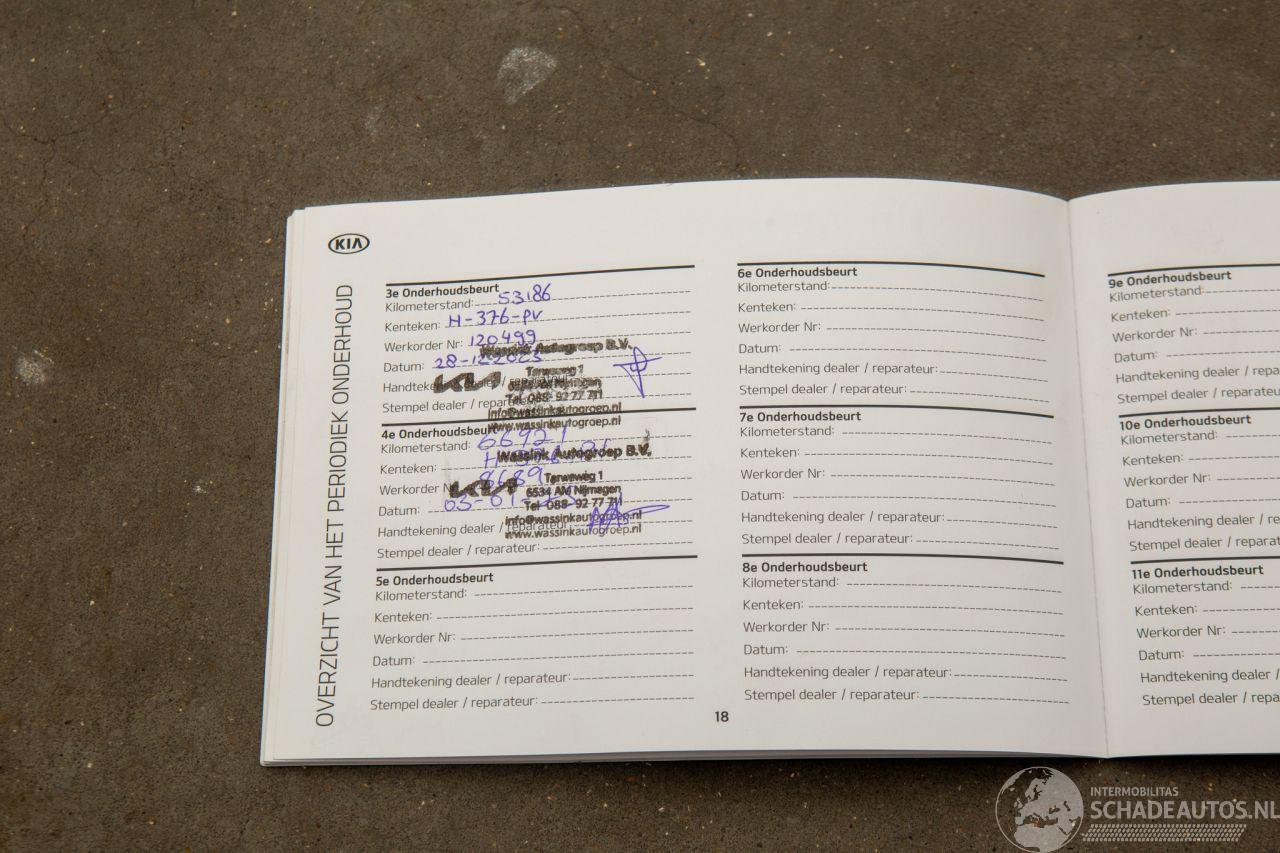 KIA
OVERZICHT VAN HET PERIODIEK ONDERHOUD
3e Onderhoudsbeurt
Kilometerstand: 53186
Kenteken: H-376-PV
Werkorder Nr: 120499
Wassink Autogroep B.V.
Datum: 28-12-2023
Terweweg 1
Handtekening dealer / reparateur:
KIA
Tel. 088-92 77 711
Stempel dealer / reparateur:
info@wassinkautogroep.nl
www.wassinkautogroep.nl
4e Onderhoudsbeurt
Kilometerstand: 66921
Wassink Autogroep B.V.
Kenteken:
Werkorder Nr: 8689
KIA
Terweweg 1
6534 AM Nijmegen
Datum: 03-01-
Tel 088-92 77 711
info@wassinkautogroep.nl
Handtekening dealer / reparateur:
www.wassinkautogroep.nl
Stempel dealer / reparateur:
5e Onderhoudsbeurt
Kilometerstand:
Kenteken:
Werkorder Nr:
Datum:
Handtekening dealer / reparateur:
Stempel dealer / reparateur:
6e Onderhoudsbeurt
Kilometerstand:
Kenteken:
Werkorder Nr:
Datum:
Handtekening dealer / reparateur:
Stempel dealer / reparateur:
7e Onderhoudsbeurt
Kilometerstand:
Kenteken:
Werkorder Nr:
Datum:
Handtekening dealer / reparateur:
Stempel dealer / reparateur:
8e Onderhoudsbeurt
Kilometerstand:
Kenteken:
Werkorder Nr:
Datum:
Handtekening dealer / reparateur:
Stempel dealer / reparateur:
18
9e Onderhoudsbeurt
Kilometerstand:
Kenteken:
Werkorder Nr:
Datum:
Handtekening dealer / rep
Stempel dealer / reparateu
10e Onderhoudsbeurt
Kilometerstand:
Kenteken:
Werkorder Nr:
Datum:
Handtekening dealer / re
Stempel dealer / reparat
11e Onderhoudsbeurt
Kilometerstand:
Kenteken:
Werkorder Nr:
Datum:
Handtekening dealer /
Stempel dealer / repara
INTERMOBILITAS
SCHADEAUTOS.NL